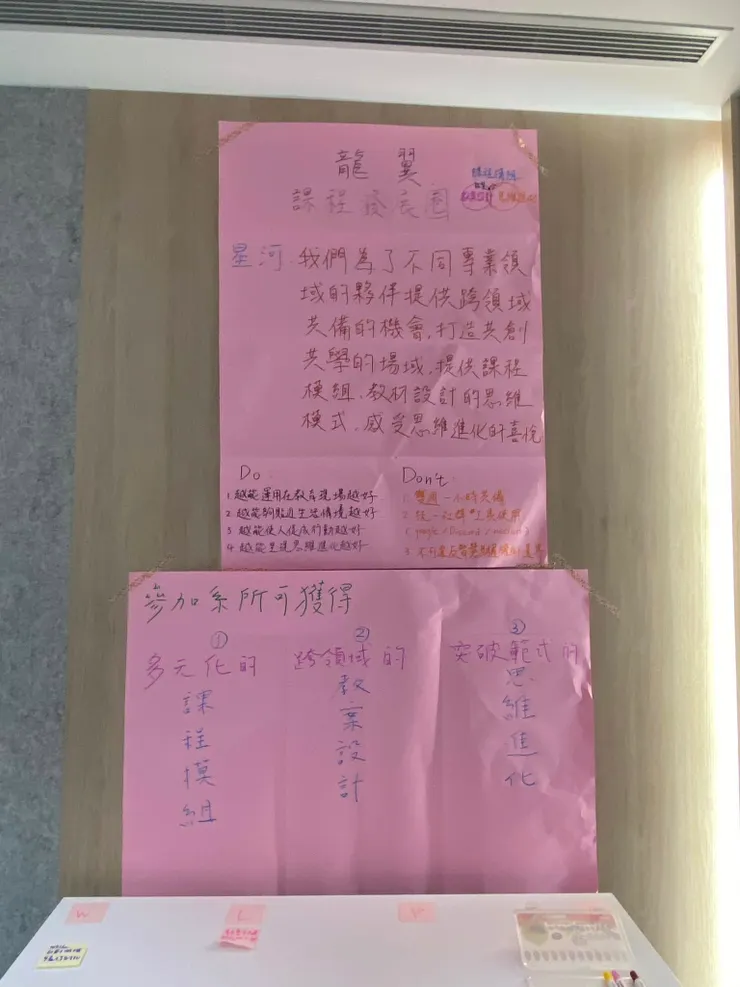 龍翼
課程發展圈
課程模組
教案設計
思維進化
星河:我們為了不同專業領
域的夥伴提供跨領域
共備的機會,打造共創
共學的場域,提供課程
模組、教材設計的思維
模式,感受思維進化的喜悅
Do:
1 越能運用在教育現場越好
2 越能夠貼近生活情境越好
3 越能使人徹底行動越好
4 越能呈現思維進化越好
Don't:
1. 雙週一小時共備
2. 統一社群
3. 不可
參加系所可獲得
①
多元化的
課程模組
②
跨領域的
教案設計
③
突破範式的
思維進化
W
L